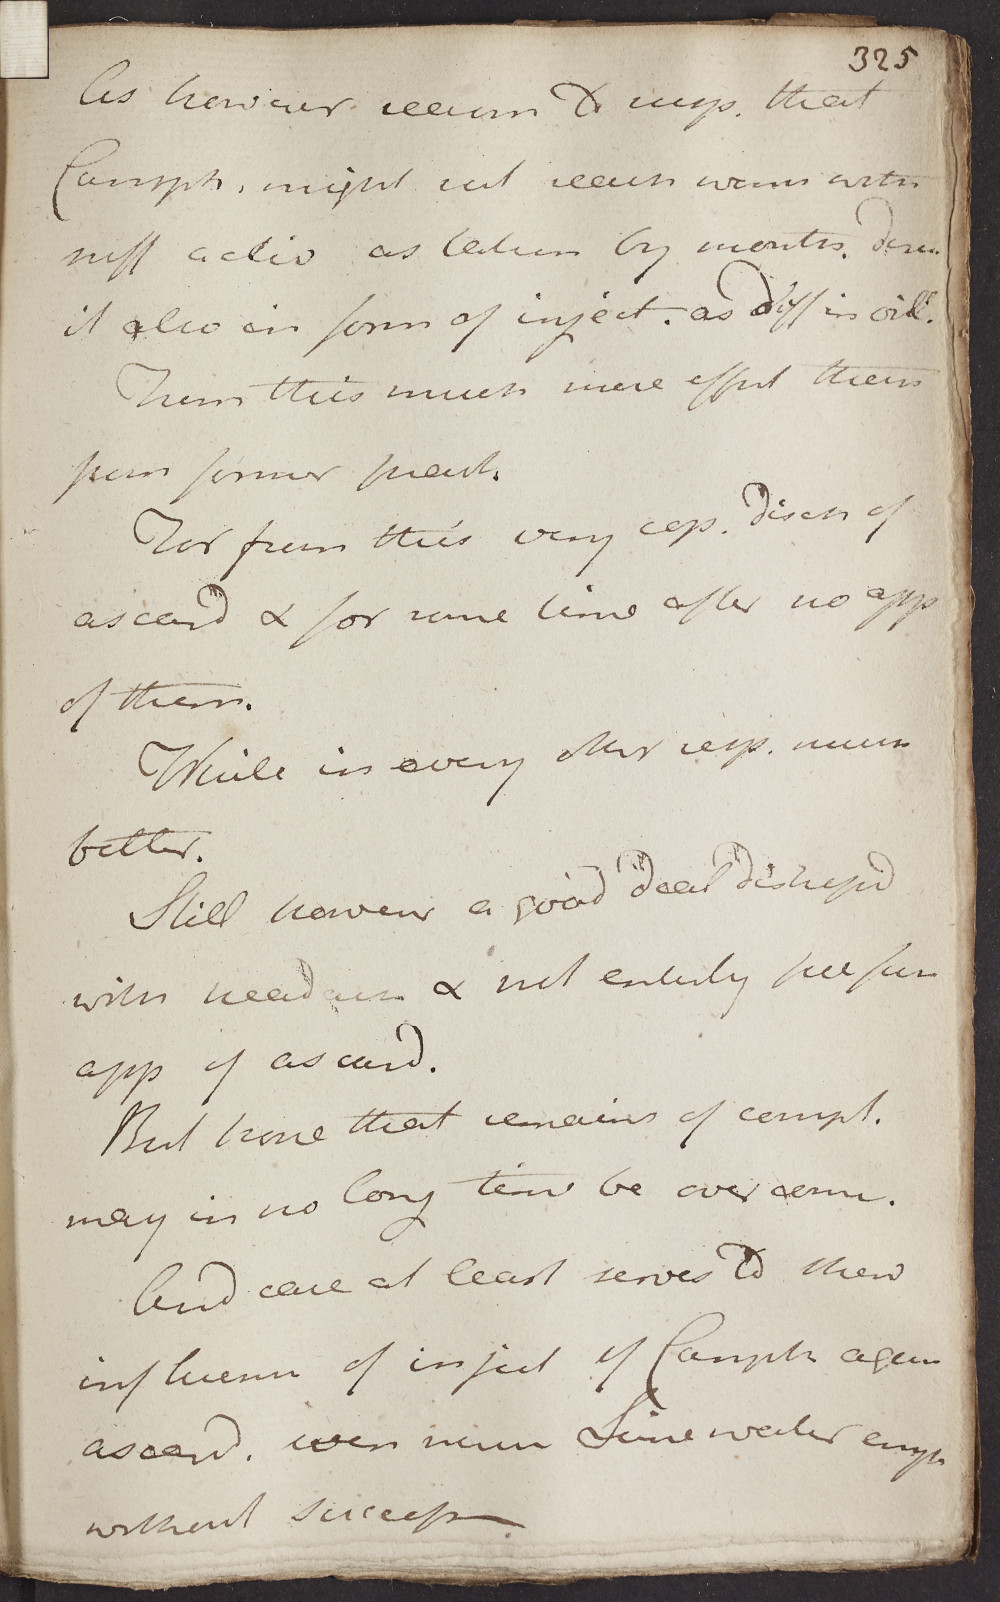 325
As however reason to susp. that
Camph. might not reach worms with
suff activ as taken by mouth. Desir
it also in form of inject. as diff in oil.
From this much more effect than
from former pract.
For from this very cop. disch of
ascarid & for some time after no app
of them.
While in every other resp. much
better.
Still however a good deal distress'd
with headach & not entirely free from
app of ascarid.
But hope that remains of compl.
may in no long time be overcome.
And case at least serves to shew
influence of inject of Camph again
ascarid. even when Lime water emp
without success